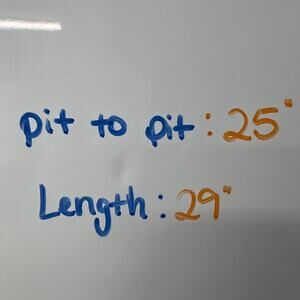 pit to pit: 25"
Length: 29"